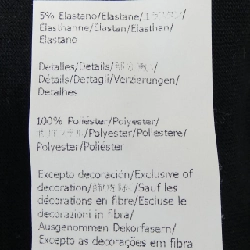 5% Elastano/Elastane/
Élasthanne/Elastan/Elasthan/
Elastano
Detalles/Details/
Détails/Dettagli/Verzierungen/
Detalhes
100% Poliéster/Polyester/
Polyester/Poliestere/
Polyester/Poliéster
Excepto decoración/Exclusive of
decoration/ /Sauf les
décorations en fibre/Escluse le
decorazioni in fibra/
Ausgenommen Dekorfasern/
Excepto as decorações em fibra